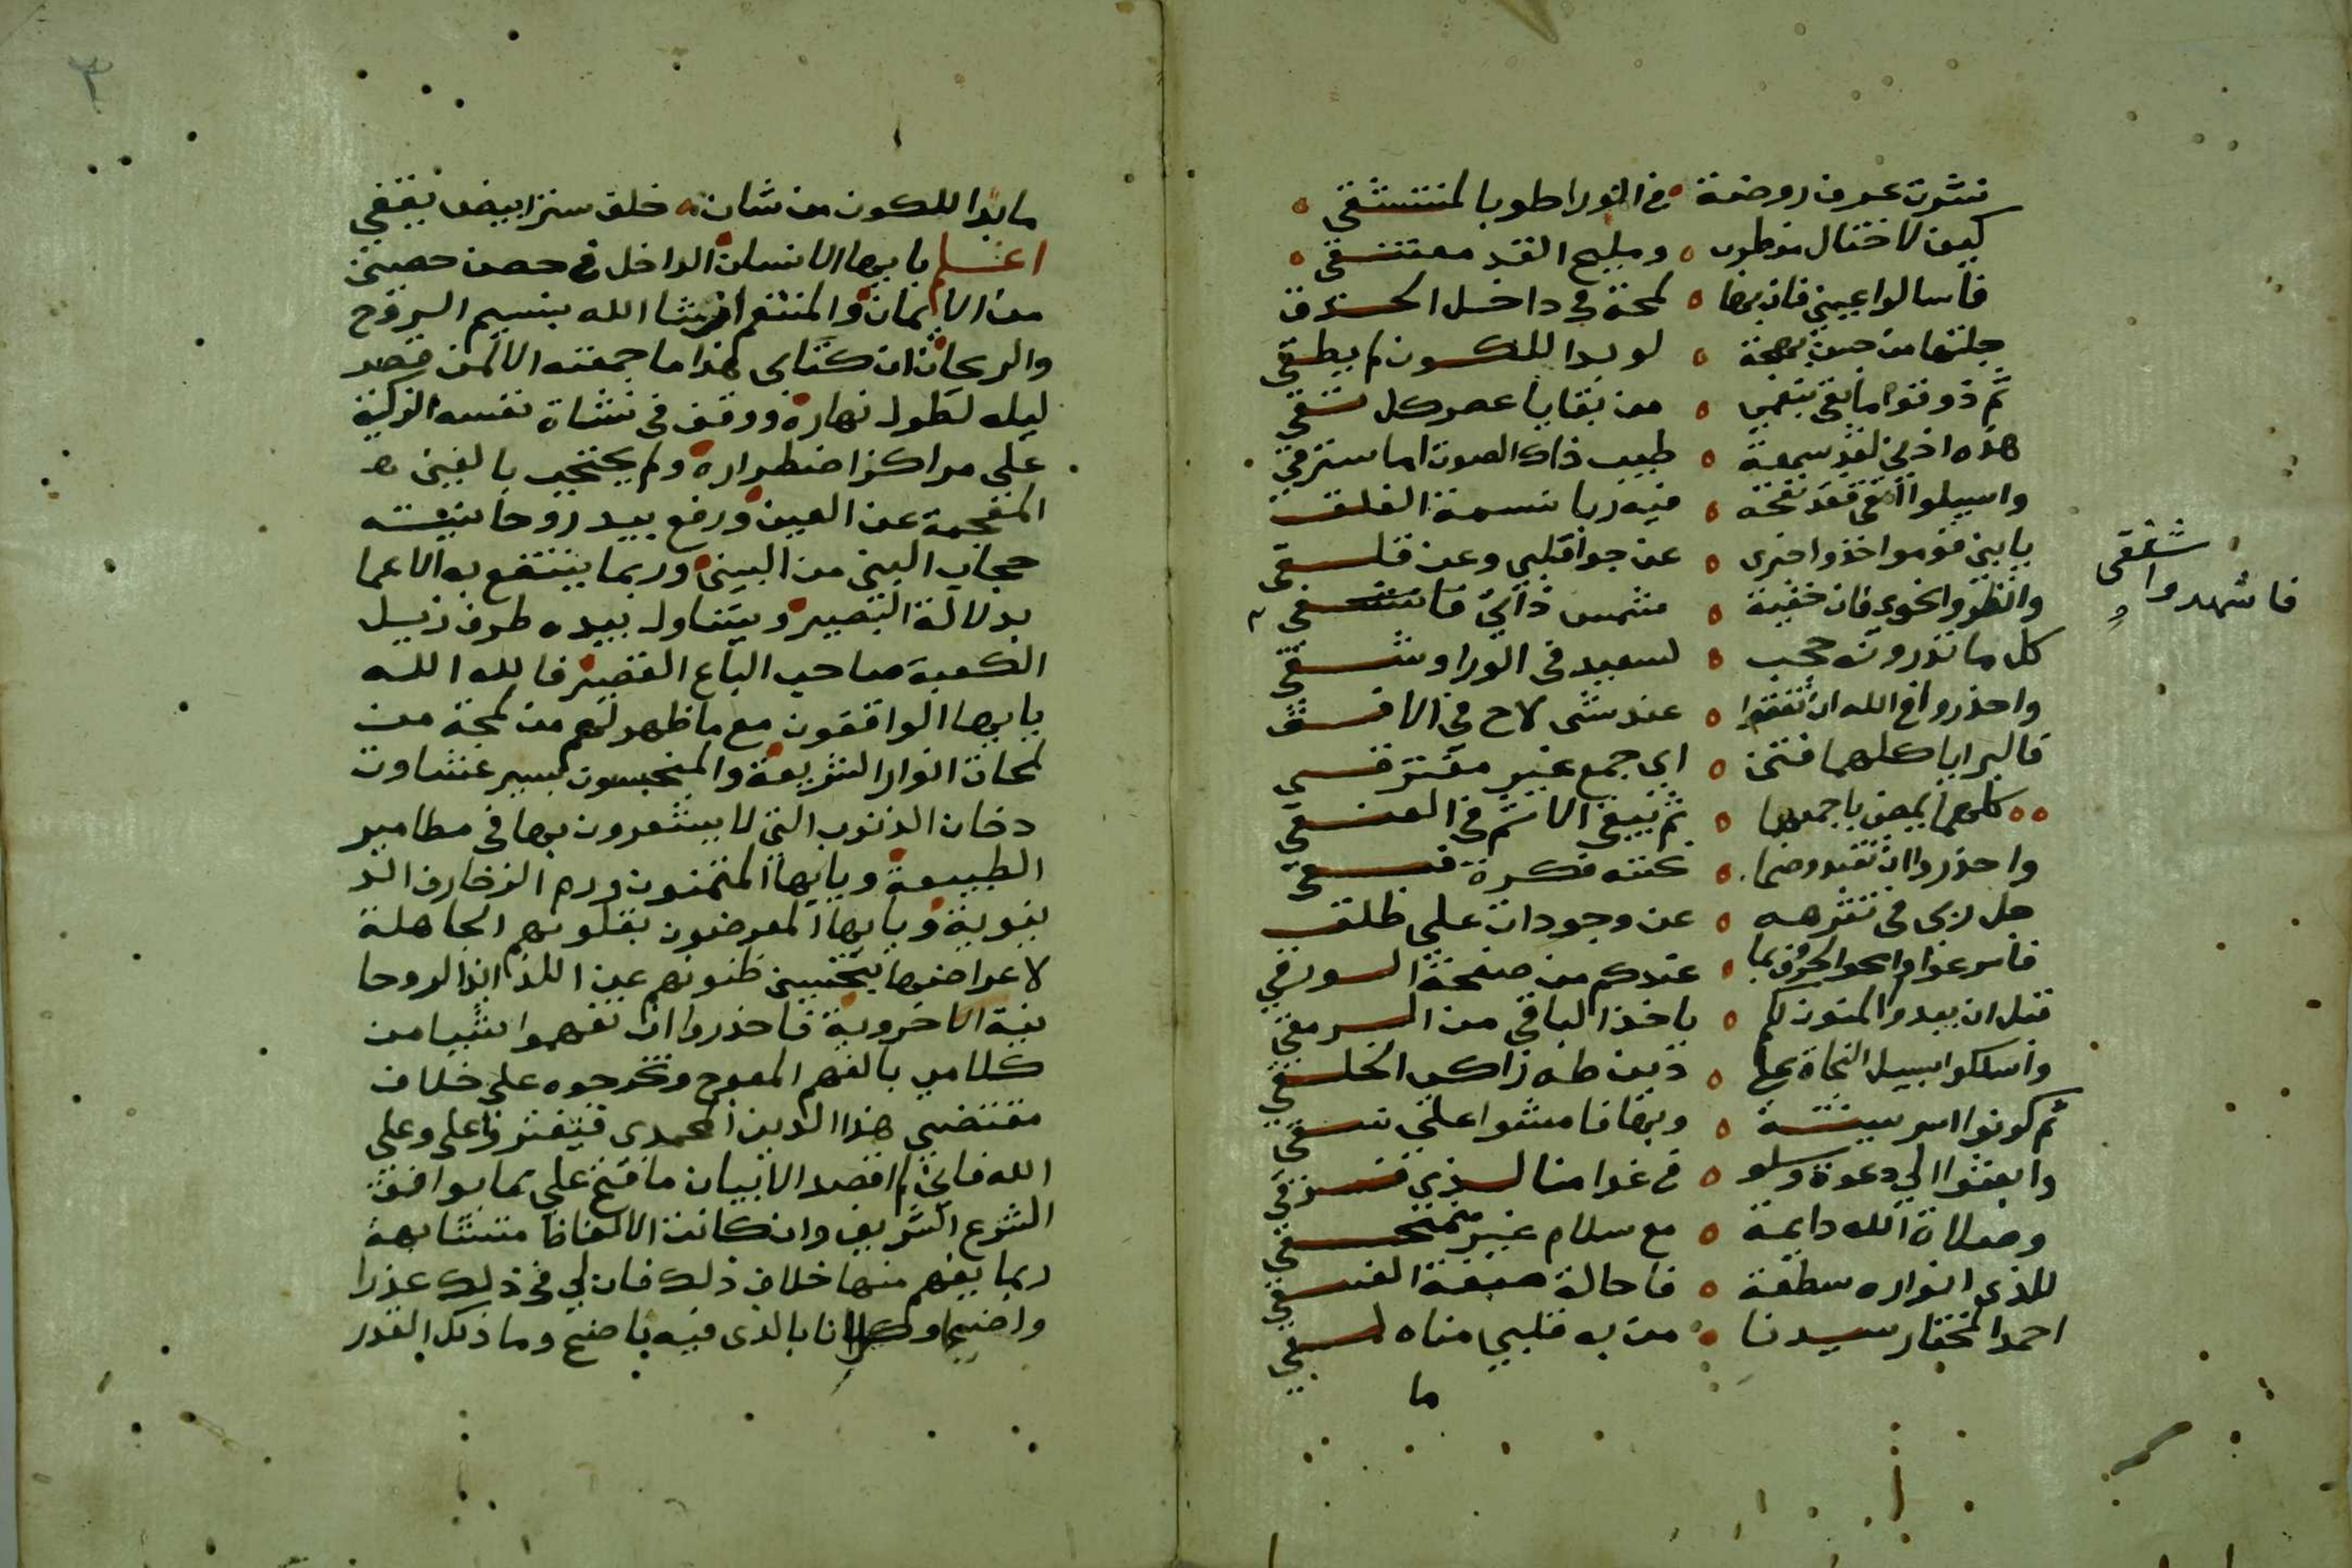 نشرت عرف روضة في الورا طوبا لمنتشقي
كيف لا ختال من طرب ومليح القد معتنقي
فاسالوا عيني فان بها لمحة في داخل الحدق
جلتها من حيث بهجة لو بدا للكون لم يطقي
ثم ذوقوا ما بقي بفمي من بقايا عصر كل شقي
هذه اذني لقد سمعة طيب ذاك الصوت اما سترقي
واسيلوا انفي فقد نفحته فيه ريا نسمة الفلق
يابني قوموا خذوا خبري عن جوا قلبي وعن قلقي
وانظروا نحوي فان خفية شمس ذاتي فا شفقي
فاشهدوا شفقي
كل ما تدرونه حجب لسعيد في الورا وشقي
واحذروا في الله ان تقفوا عند شي لاح في الافق
فالبرايا كلها فتن اي جمع غير مفترقي
كلها يمضي باجمعها ثم يبقي الاثم في العنقي
واحذروا ان تقتدوا صنما نحتته فكرة فسقي
جل ربي في تنزهه عن وجودات علي طلق
فاسرعوا وامحوا الحروف بما عندكم من صفحة الورقي
قبل ان يبدو المنون لكم ياخذ الباقي من الرمقي
واسلكوا سبيل النجاة بها دين طه زاكي الخلقي
ثم كونوا اسر سنته وبها فامشوا علي نسقي
وابعثوا لي دعوة وسلو في غدا منا لذي فرقي
وصلاة الله دايمة مع سلام غير منمحقي
للذي انواره سطعة فاحالة صبغة الغسقي
احمد المختار سيدنا من به قلبي مناه لقي
ما
٣
ما بدا للكون من شان خلق ستر ابيض يققي
اعلم يا ايها الانسان الداخل في حصن حصين
من الايمان والمتنعم ان شا الله بنسيم الروح
والريحان ان كتابي هذا ما جمعته الا لمن قصر
ليله لطول نهاره ووقف في نشاة نفسه الزكية
علي مراكز اضطراره ولم يحتجب بالغين
المعجمة عن العين ورفع بيد روحانيته
حجاب البين من البين وربما ينتفع به الاعما
بدلالة البصير ويتناول بيده طرف ذيل
الكعبة صاحب الباع القصير فالله الله
يا ايها الواقفون مع ما ظهر لهم من لمحة من
لمحات انوار الشريعة والمنحبسون بسير غشاوت
دخان الذنوب التي لا يشعرون بها في مطامير
الطبيعة ويا ايها المتمنون ورم الزخارف الد
نيوية ويا ايها المعرضون بقلوبهم الجاهلة
لاعراضها بتخييب ظنونهم عن اللذائذ الروحا
نية الاخروية فاحذروا ان تفهموا شيا من
كلامي بالفهم المعوج وتخرجوه علي خلاف
مقتضي هذا الدين المحمدي فتفتروا علي وعلي
الله فاني لم اقصد الا بيان ما فتح علي بما يوافق
الشرع الشريف وان كانت الالفاظ متشابهة
ربما يفهم منها خلاف ذلك فان لي في ذلك عذرا
واضحا وكل انا بالذي فيه ناضح وما ذلك القدر